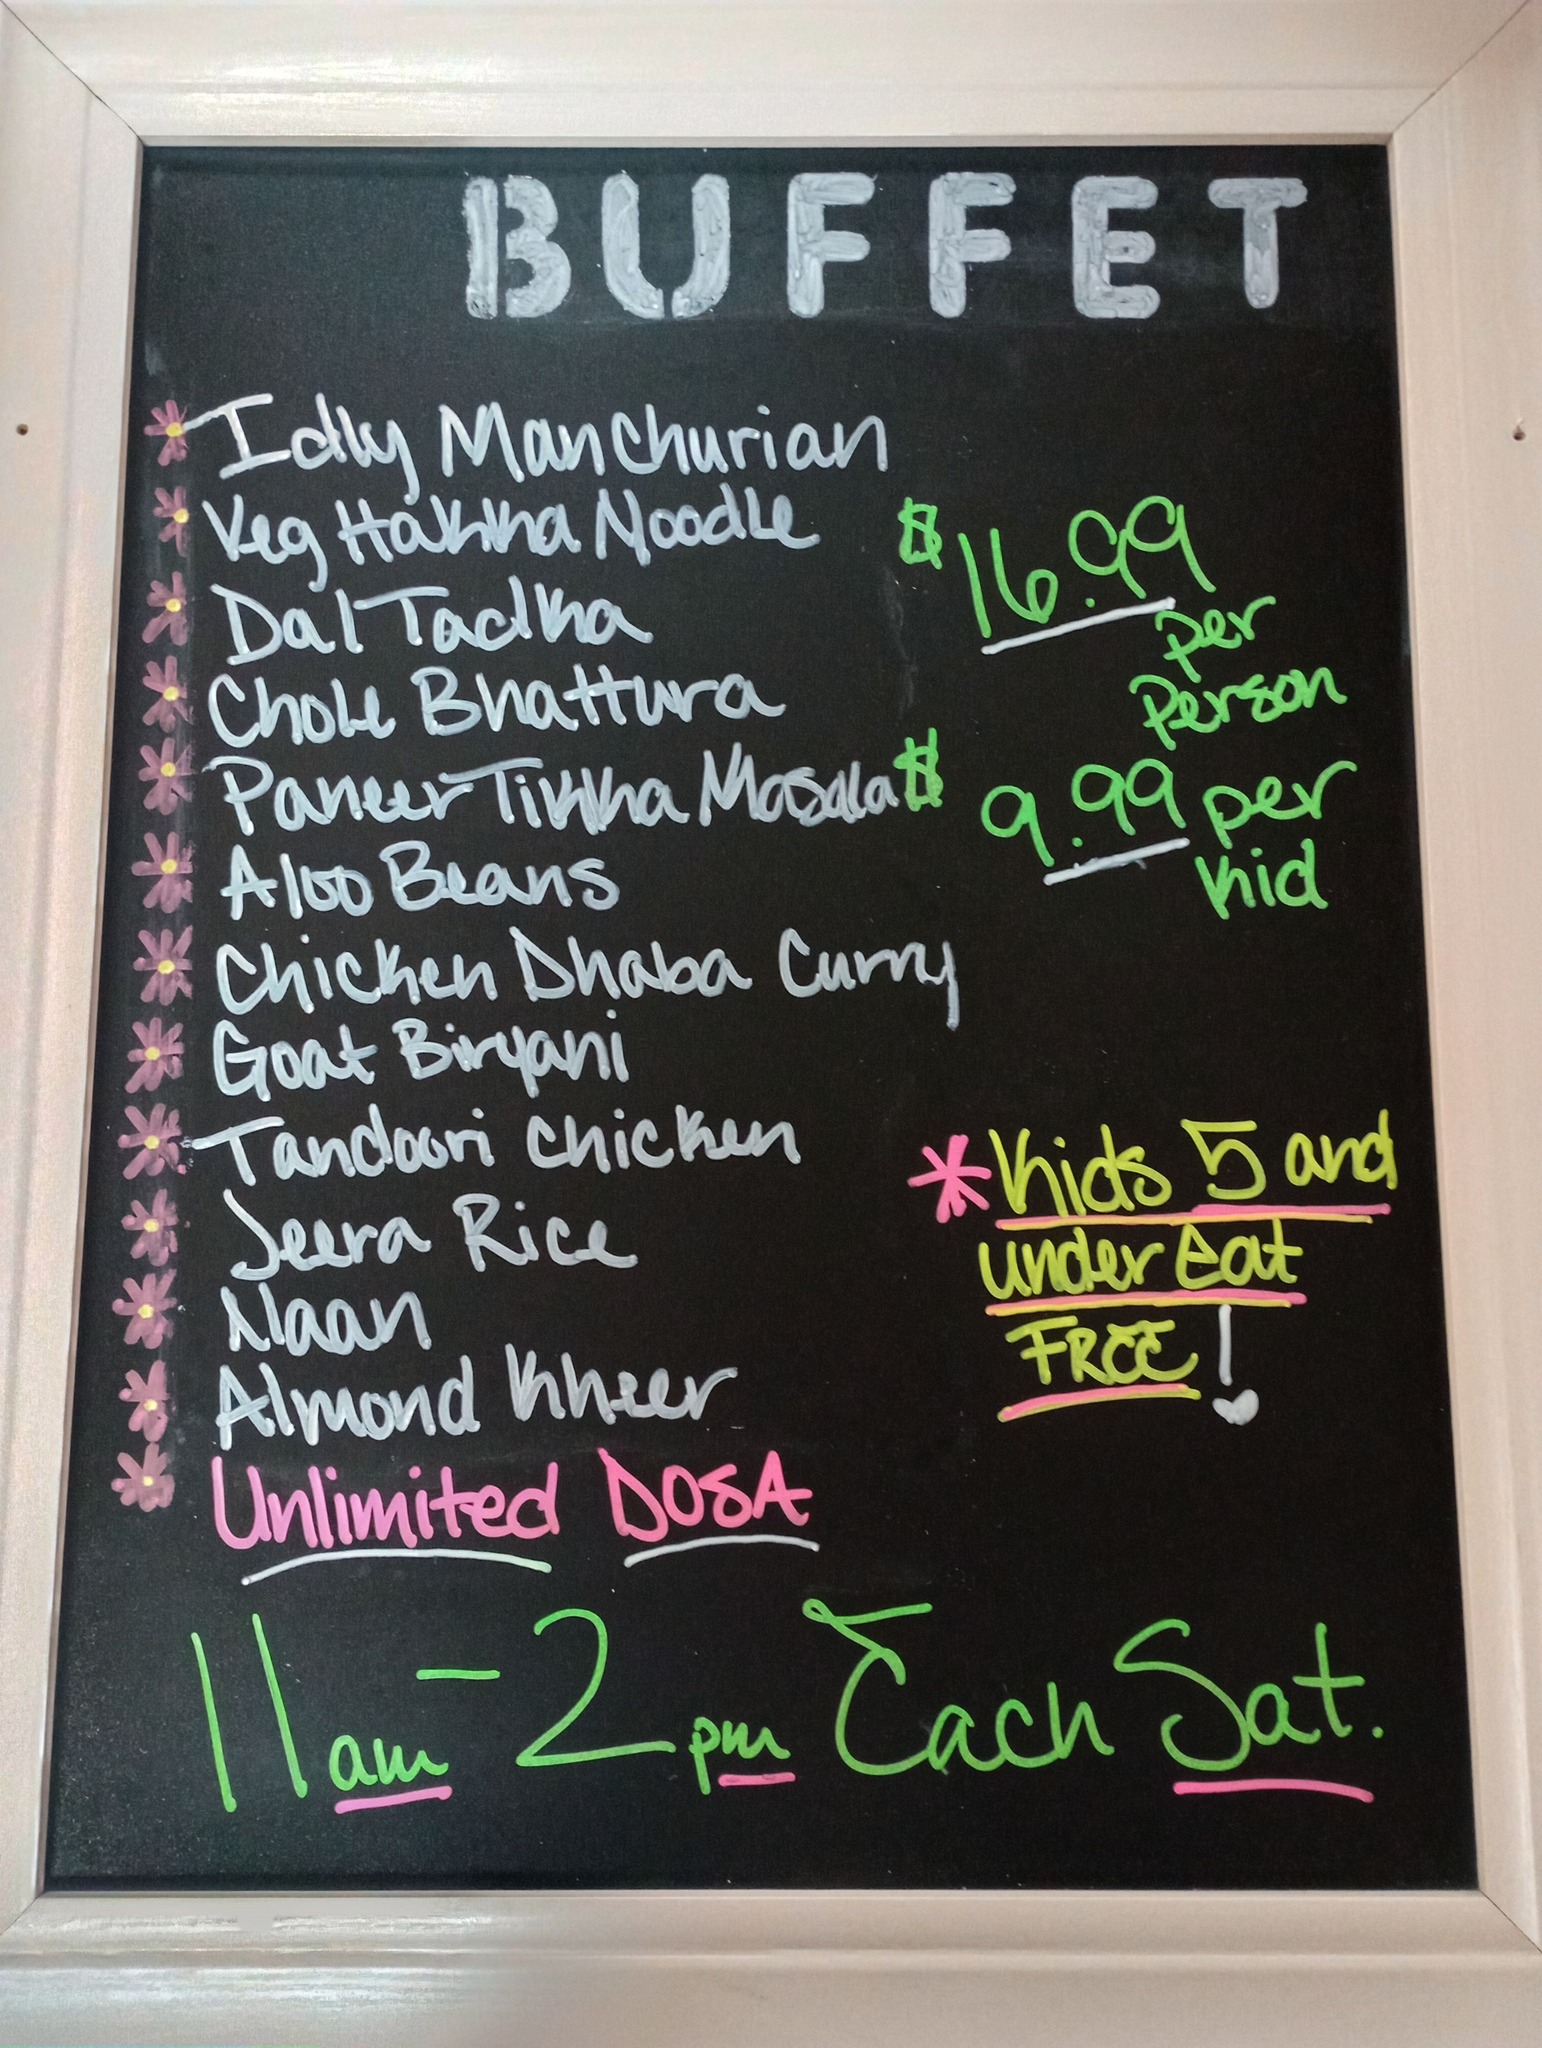 BUFFET
Idly Manchurian
Veg Hakkha Noodle
Dal Tadkha
Chole Bhattura
Paneer Tikkha Masala
Aloo Beans
Chicken Dhaba Curry
Goat Biryani
Tandoori Chicken
Jeera Rice
Naan
Almond Kheer
Unlimited DOSA
$16.99
per
Person
$9.99 per
Kid
*Kids 5 and
under Eat
FREE!
11am-2pm Each Sat.